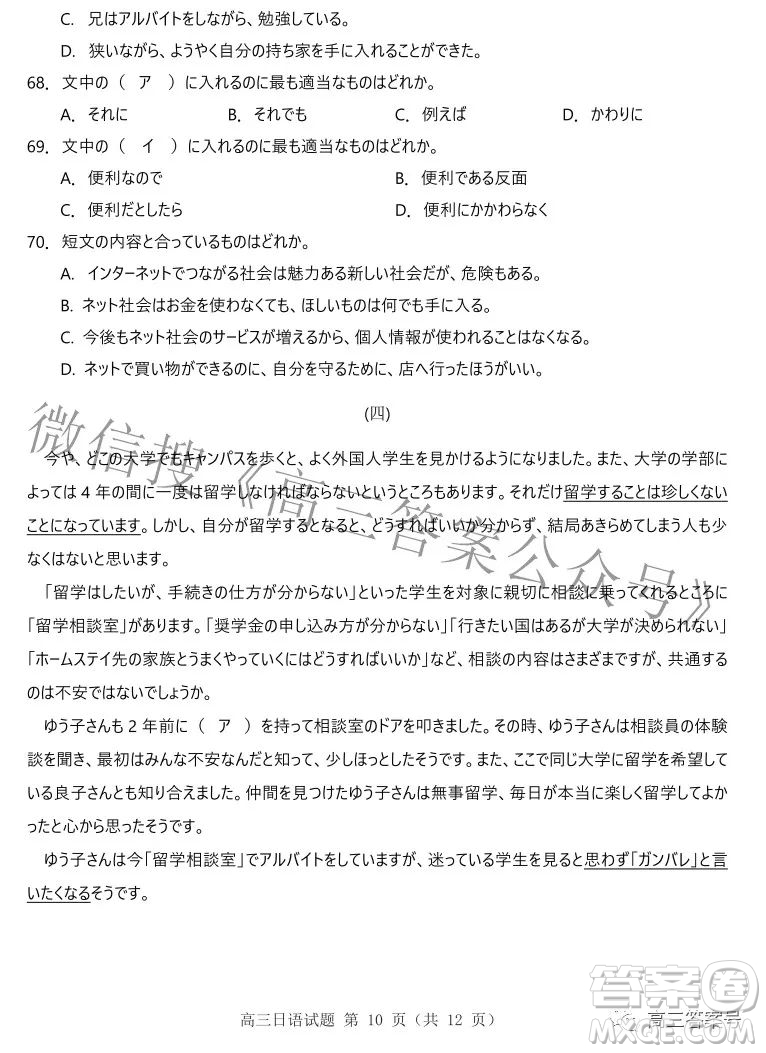 C. 兄はアルバイトをしながら、勉強している。
D. 狭いながら、ようやく自分の持ち家を手に入れることができた。
68. 文中の（ ア ）に入れるのに最も適当なものはどれか。
A. それに B. それでも C. 例えば D. かわりに
69. 文中の（ イ ）に入れるのに最も適当なものはどれか。
A. 便利なので B. 便利である反面
C. 便利だとしたら D. 便利にかかわらなく
70. 短文の内容と合っているものはどれか。
A. インターネットでつながる社会は魅力ある新しい社会だが、危険もある。
B. ネット社会はお金を使わなくても、ほしいものは何でも手に入る。
C. 今後もネット社会のサービスが増えるから、個人情報が使われることはなくなる。
D. ネットで買い物ができるのに、自分を守るために、店へ行ったほうがいい。
(四)
今や、どこの大学でもキャンパスを歩くと、よく外国人学生を見かけるようになりました。また、大学の学部に
よっては 4 年の間に一度は留学しなければならないというところもあります。それだけ留学することは珍しくない
ことになっています。しかし、自分が留学するとなると、どうすればいいか分からず、結局あきらめてしまう人も少
なくはないと思います。
「留学はしたいが、手続きの仕方が分からない」といった学生を対象に親切に相談に乗ってくれるところに
「留学相談室」があります。「奨学金の申し込み方が分からない」「行きたい国はあるが大学が決められない」
「ホームステイ先の家族とうまくやっていくにはどうすればいいか」など、相談の内容はさまざまですが、共通する
のは不安ではないでしょうか。
ゆう子さんも 2 年前に（ ア ）を持って相談室のドアを叩きました。その時、ゆう子さんは相談員の体験
談を聞き、最初はみんな不安なんだと知って、少しほっとしたそうです。また、ここで同じ大学に留学を希望して
いる良子さんとも知り合えました。仲間を見つけたゆう子さんは無事留学、毎日が本当に楽しく留学してよか
ったと心から思ったそうです。
ゆう子さんは今「留学相談室」でアルバイトをしていますが、迷っている学生を見ると思わず「ガンバレ」と言
いたくなるそうです。
微信搜《高三答案公众号》
高三日语试题 第 10 页（共 12 页）
高三答案号
答案卷
MXQE.COM